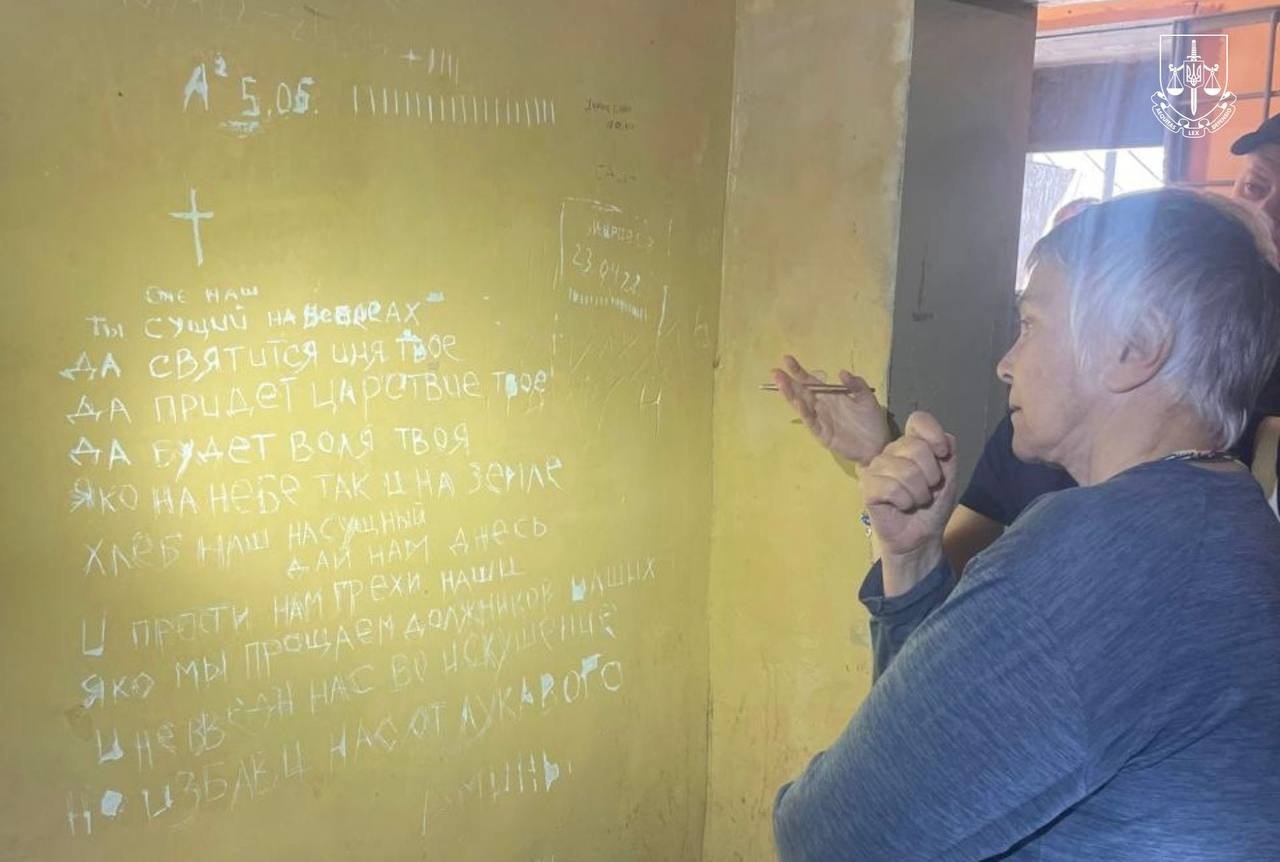 А² 5.06.
23.04.22
Оче наш
Ты сущий на небесах
Да святится имя твое
Да придет царствие твое
Да будет воля твоя
Яко на небе так и на земле
Хлеб наш насущный
дай нам днесь
И прости нам грехи наши
Яко мы прощаем должников наших
И не введи нас во искушение
Но избавци нас от лукавого
Аминь
AEQUITAS LEX DEFENSIO